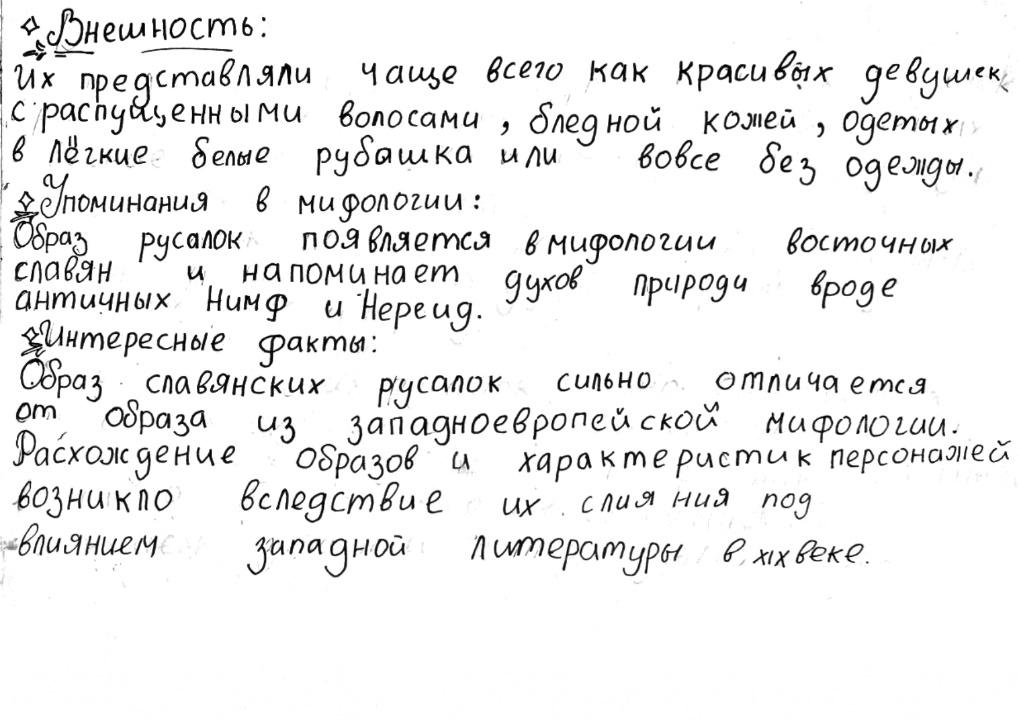 Внешность:
Их представляли чаще всего как красивых девушек
с распущенными волосами, бледной кожей, одетых
в лёгкие белые рубашка или вовсе без одежды.
Упоминания в мифологии:
Образ русалок появляется в мифологии восточных
славян и напоминает духов природы вроде
античных Нимф и Нереид.
Интересные факты:
Образ славянских русалок сильно отличается
от образа из западноевропейской мифологии.
Расхождение образов и характеристик персонажей
возникло вследствие их слияния под
влиянием западной литературы в XIX веке.